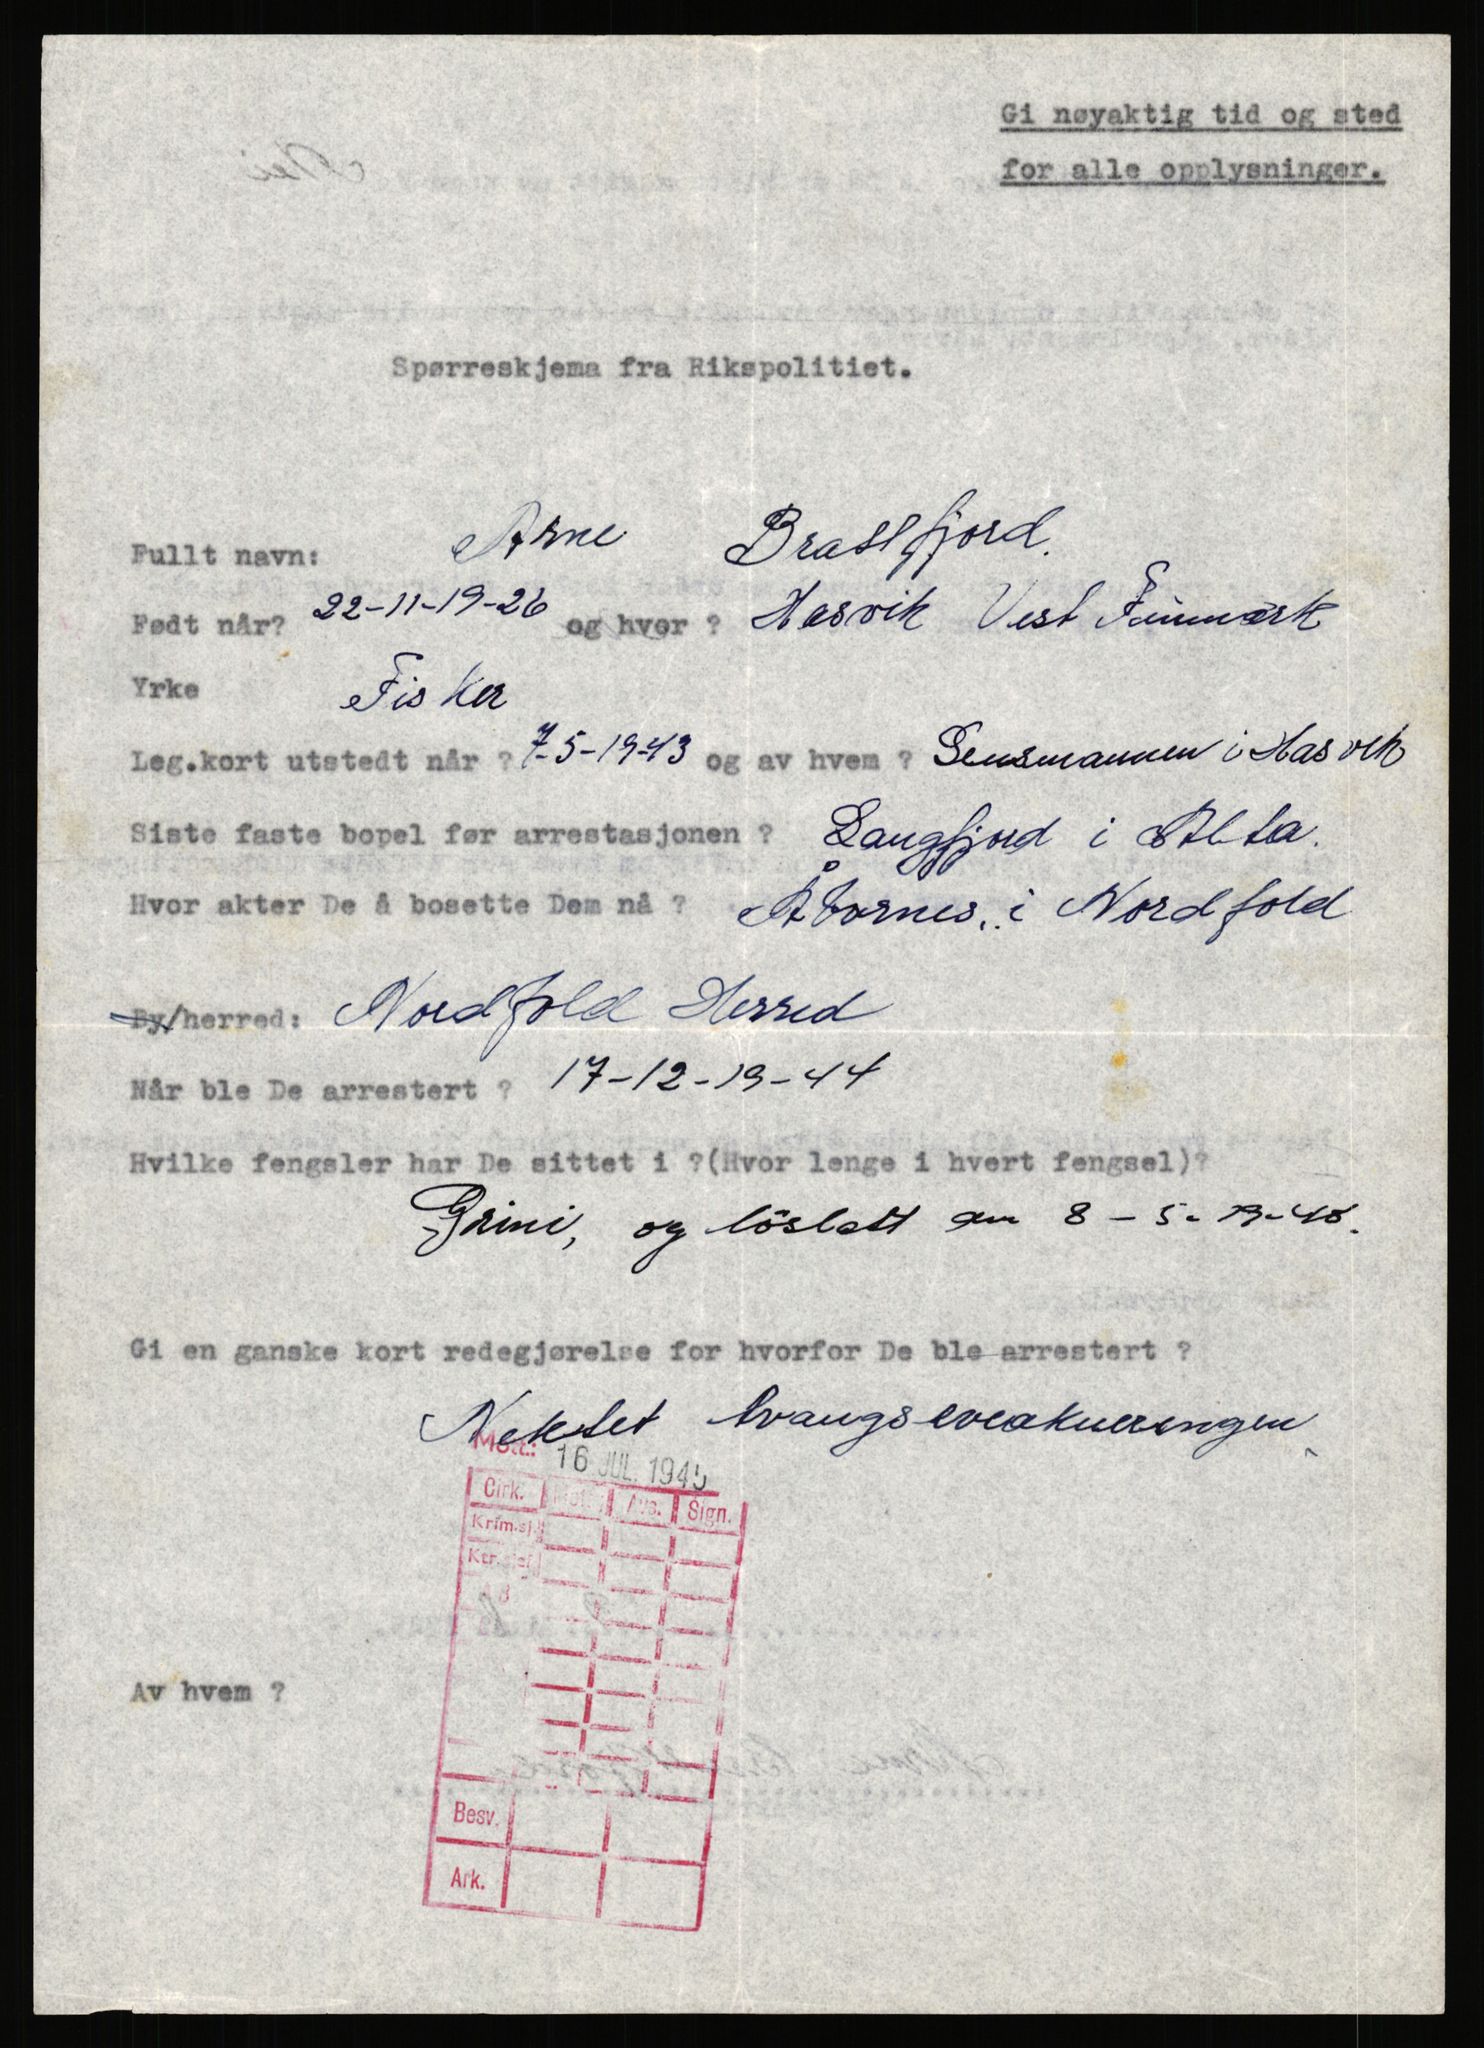 Gi nøyaktig tid og sted
for alle opplysninger.
Spørreskjema fra Rikspolitiet.
Fullt navn: Arne Brattfjord.
Født når? 22-11-19-26 og hvor ? Hasvik Vest Finmark
Yrke Fisker
Leg.kort utstedt når ? 7-5-19-43 og av hvem ? Lensmannen i Hasvik
Siste faste bopel før arrestasjonen ? Langfjord i Alta.
Hvor akter De å bosette Dem nå ? i Nordfold
By/herred: Nordfold Herred
Når ble De arrestert ? 17-12-19-44
Hvilke fengsler har De sittet i ?(Hvor lenge i hvert fengsel)?
Grini, og löslatt den 8-5-19-45.
Gi en ganske kort redegjørelse for hvorfor De ble arrestert ?
Nektet tvangsevakueringen
Mott.: 16 JUL. 1945
Cirk. Mott. Avs. Sign.
Krim.sj.
Av hvem ?
Besv.
Ark.